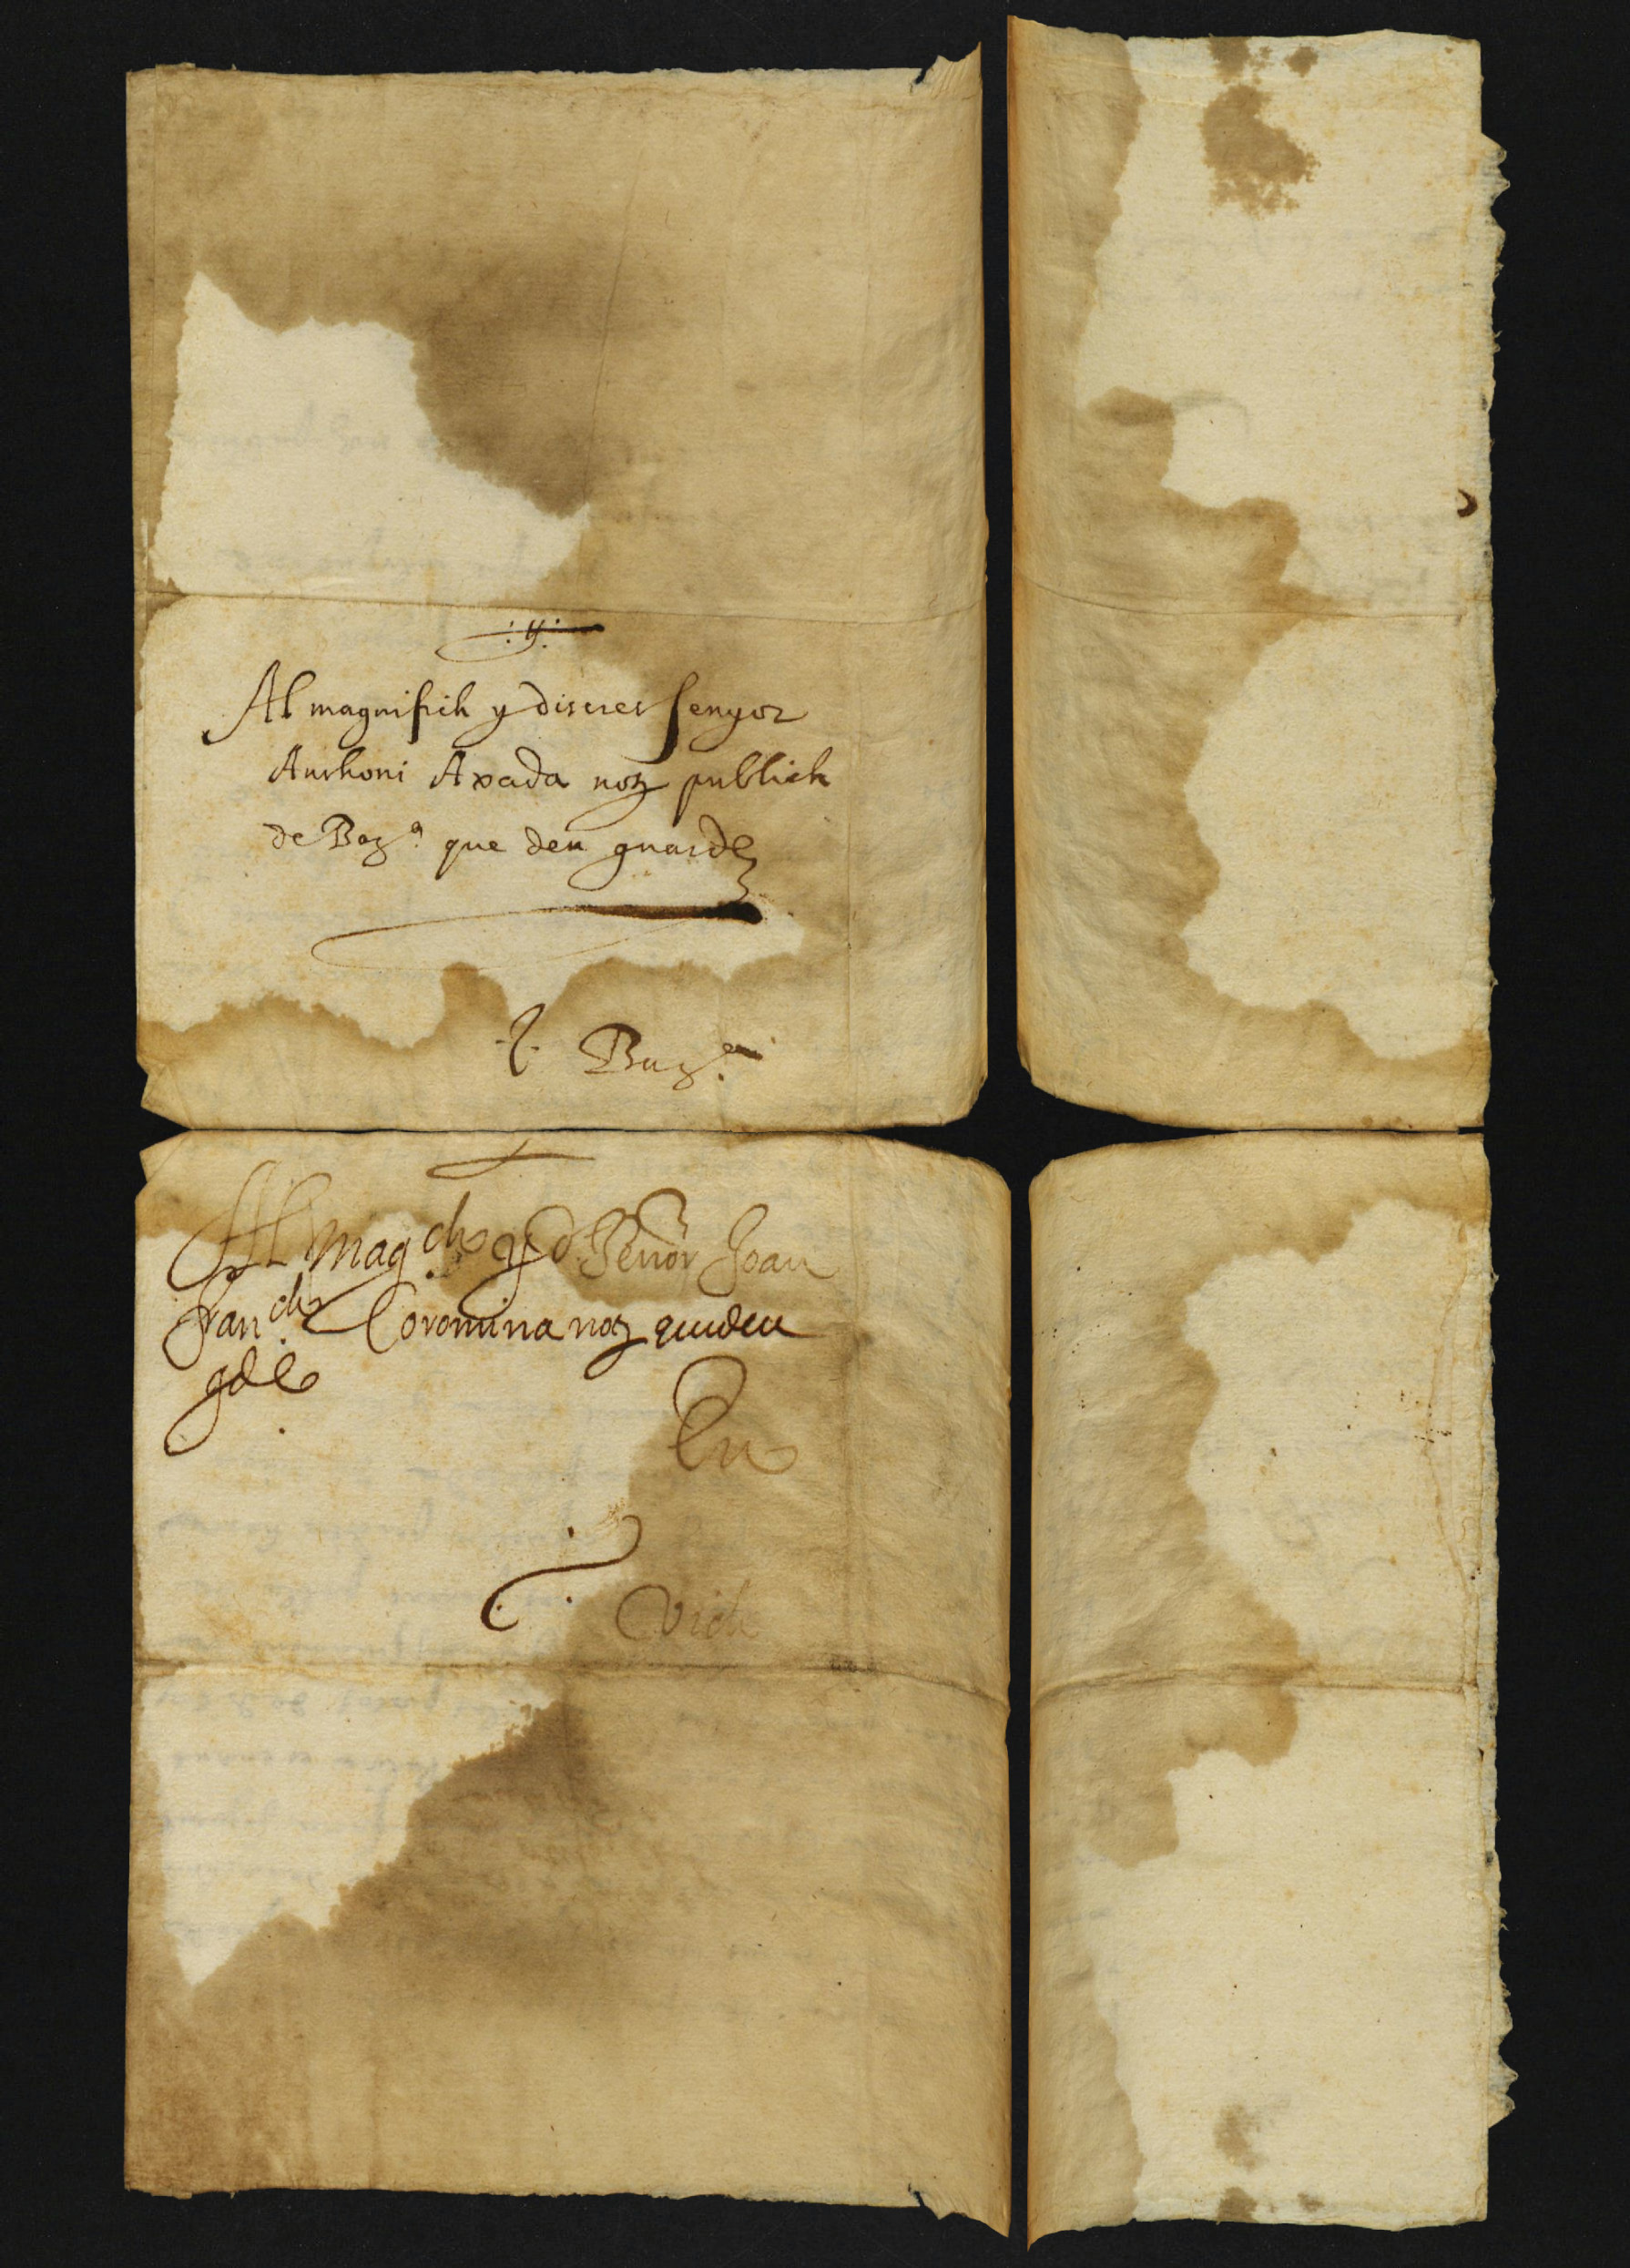 Al magnifich y discret senyor
Anthoni Axada not publich
de Barª que deu guarde
Barª
Al magch y d. Senor Joan
Franch Coromina not que deu
gde
En
Vich